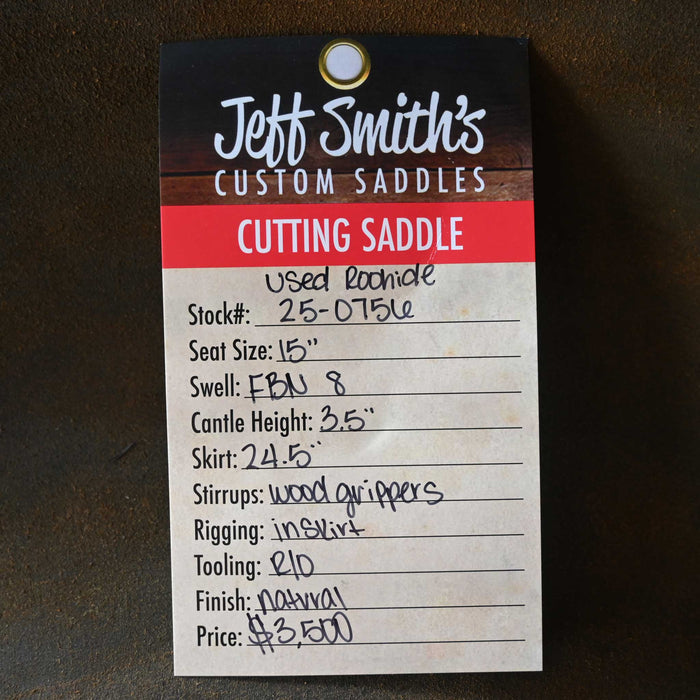 Jeff Smith's
CUSTOM SADDLES
CUTTING SADDLE
used Roohide
Stock#: 25-0756
Seat Size: 15"
Swell: FBN 8
Cantle Height: 3.5"
Skirt: 24.5"
Stirrups: wood grippers
Rigging: inskirt
Tooling: R/O
Finish: natural
Price: $3,500